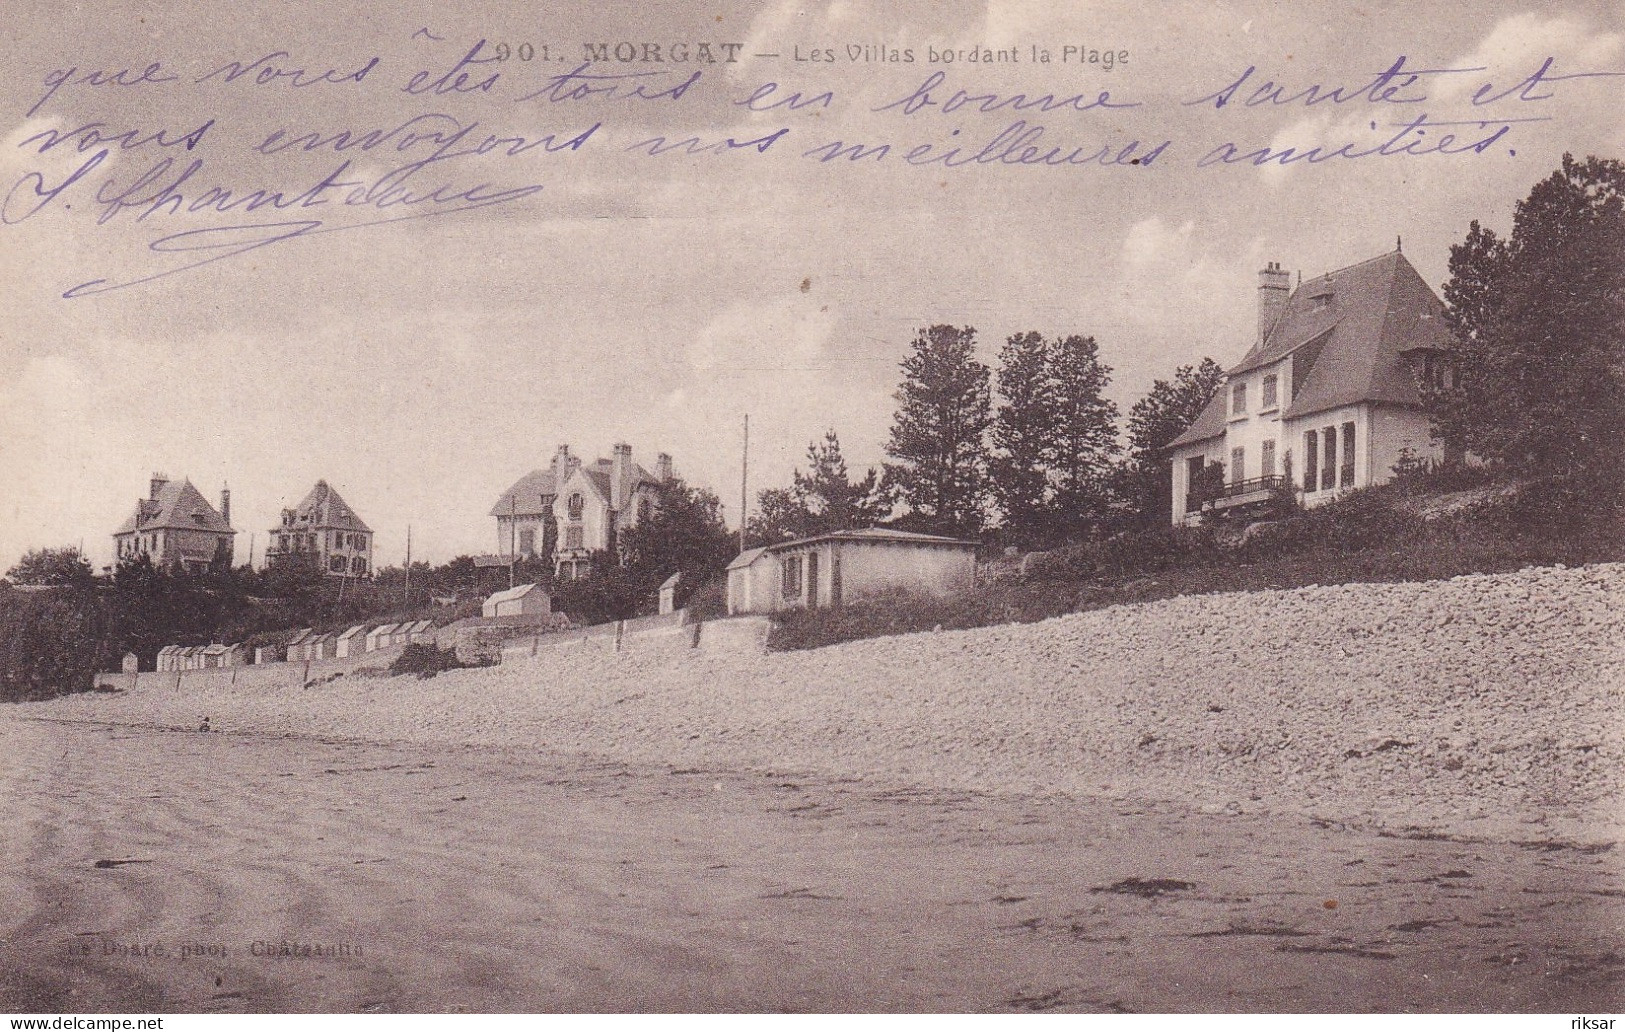 901. MORGAT — Les Villas bordant la Plage
que vous êtes tous en bonne santé et
vous envoyons nos meilleures amitiés.
S. Chanteau
Le Doaré, phot Châteaulin
delcampe.net
riksar